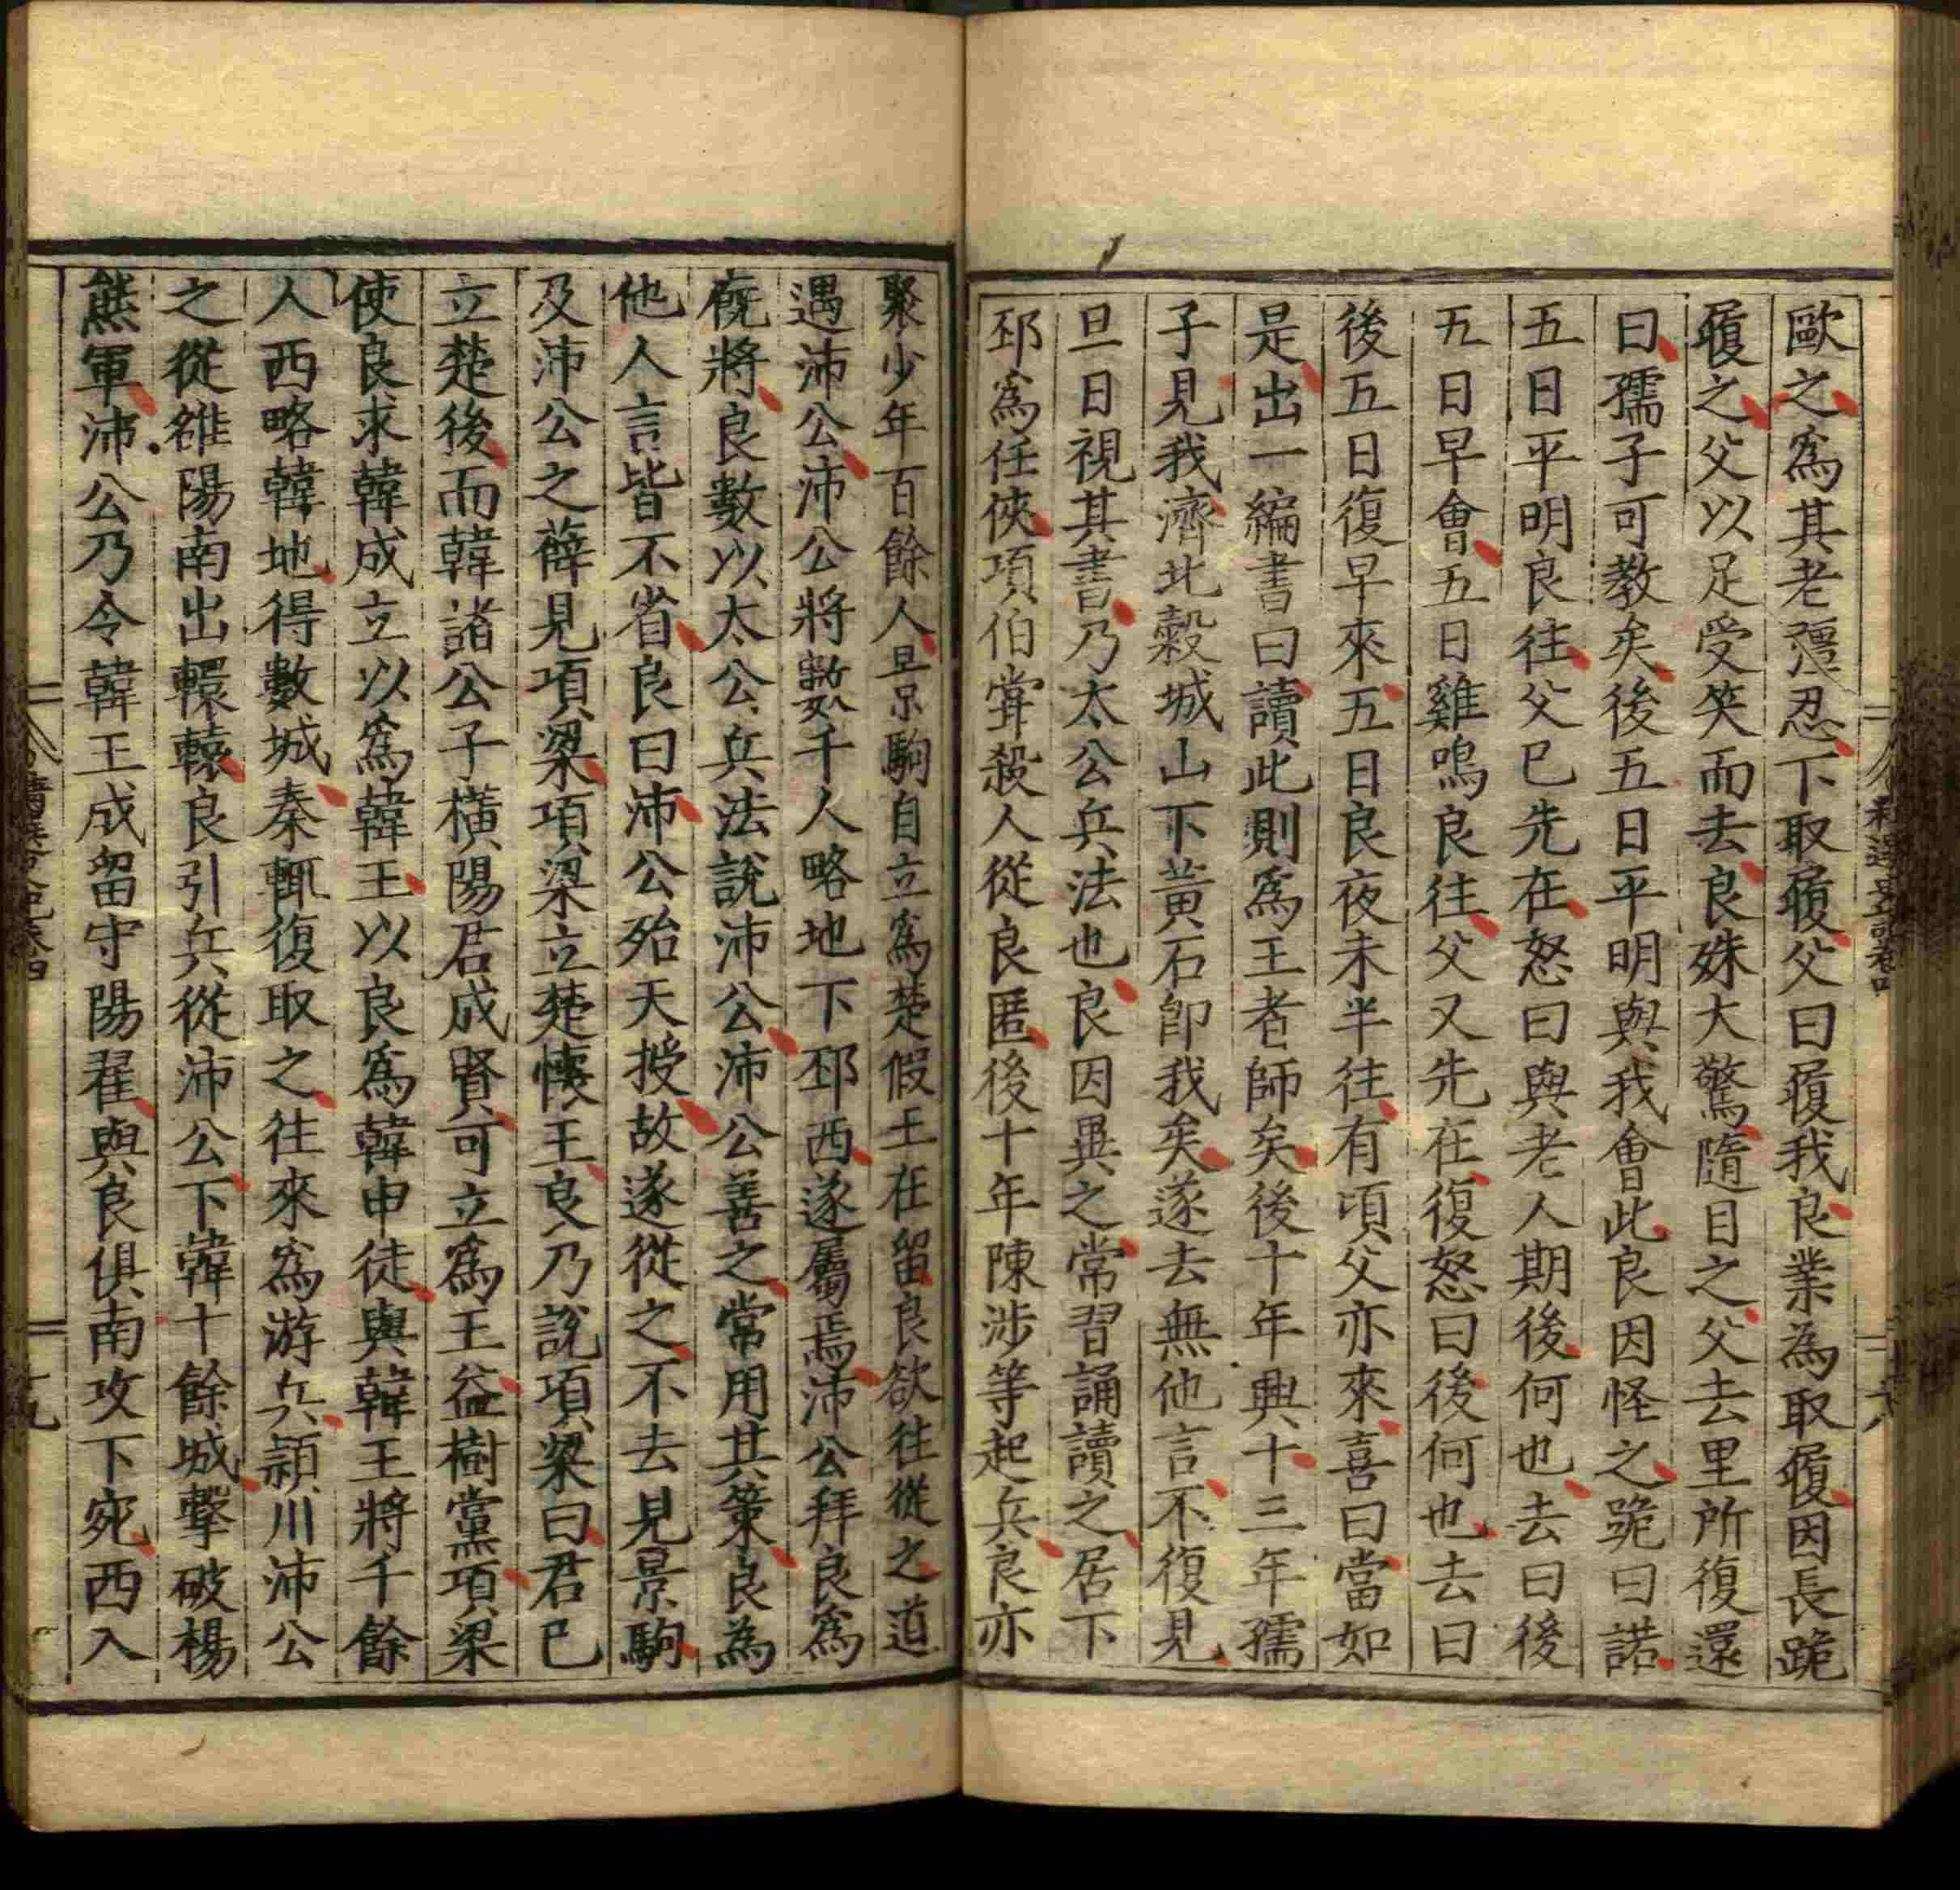 歐之爲其老彊忍下取履父曰履我良業為取履因長跪
履之父以足受笑而去良殊大驚隨目之父去里所復還
曰孺子可教矣後五日平明與我會此良因怪之跪曰諾
五日平明良往父已先在怒曰與老人期後何也去曰後
五日早會五日雞鳴良往父又先在復怒曰後何也去曰
後五日復早來五日良夜未半往有頃父亦來喜曰當如
是出一編書曰讀此則爲王者師矣後十年興十三年孺
子見我濟北穀城山下黃石卽我矣遂去無他言不復見
旦日視其書乃太公兵法也良因異之常習誦讀之居下
邳爲任俠項伯甞殺人從良匿後十年陳涉等起兵良亦
聚少年百餘人景駒自立爲楚假王在留良欲往從之道
遇沛公沛公將數千人略地下邳西遂屬焉沛公拜良爲
廐將良數以太公兵法說沛公沛公善之常用其策良為
他人言皆不省良曰沛公殆天授故遂從之不去見景駒
及沛公之薛見項梁項梁立楚懷王良乃說項梁曰君已
立楚後而韓諸公子橫陽君成賢可立爲王益樹黨項梁
使良求韓成立以爲韓王以良爲韓申徒與韓王將千餘
人西略韓地得數城秦輒復取之往來爲游兵潁川沛公
之從雒陽南出轘轅良引兵從沛公下韓十餘城擊破楊
熊軍沛公乃令韓王成留守陽翟與良俱南攻下宛西入